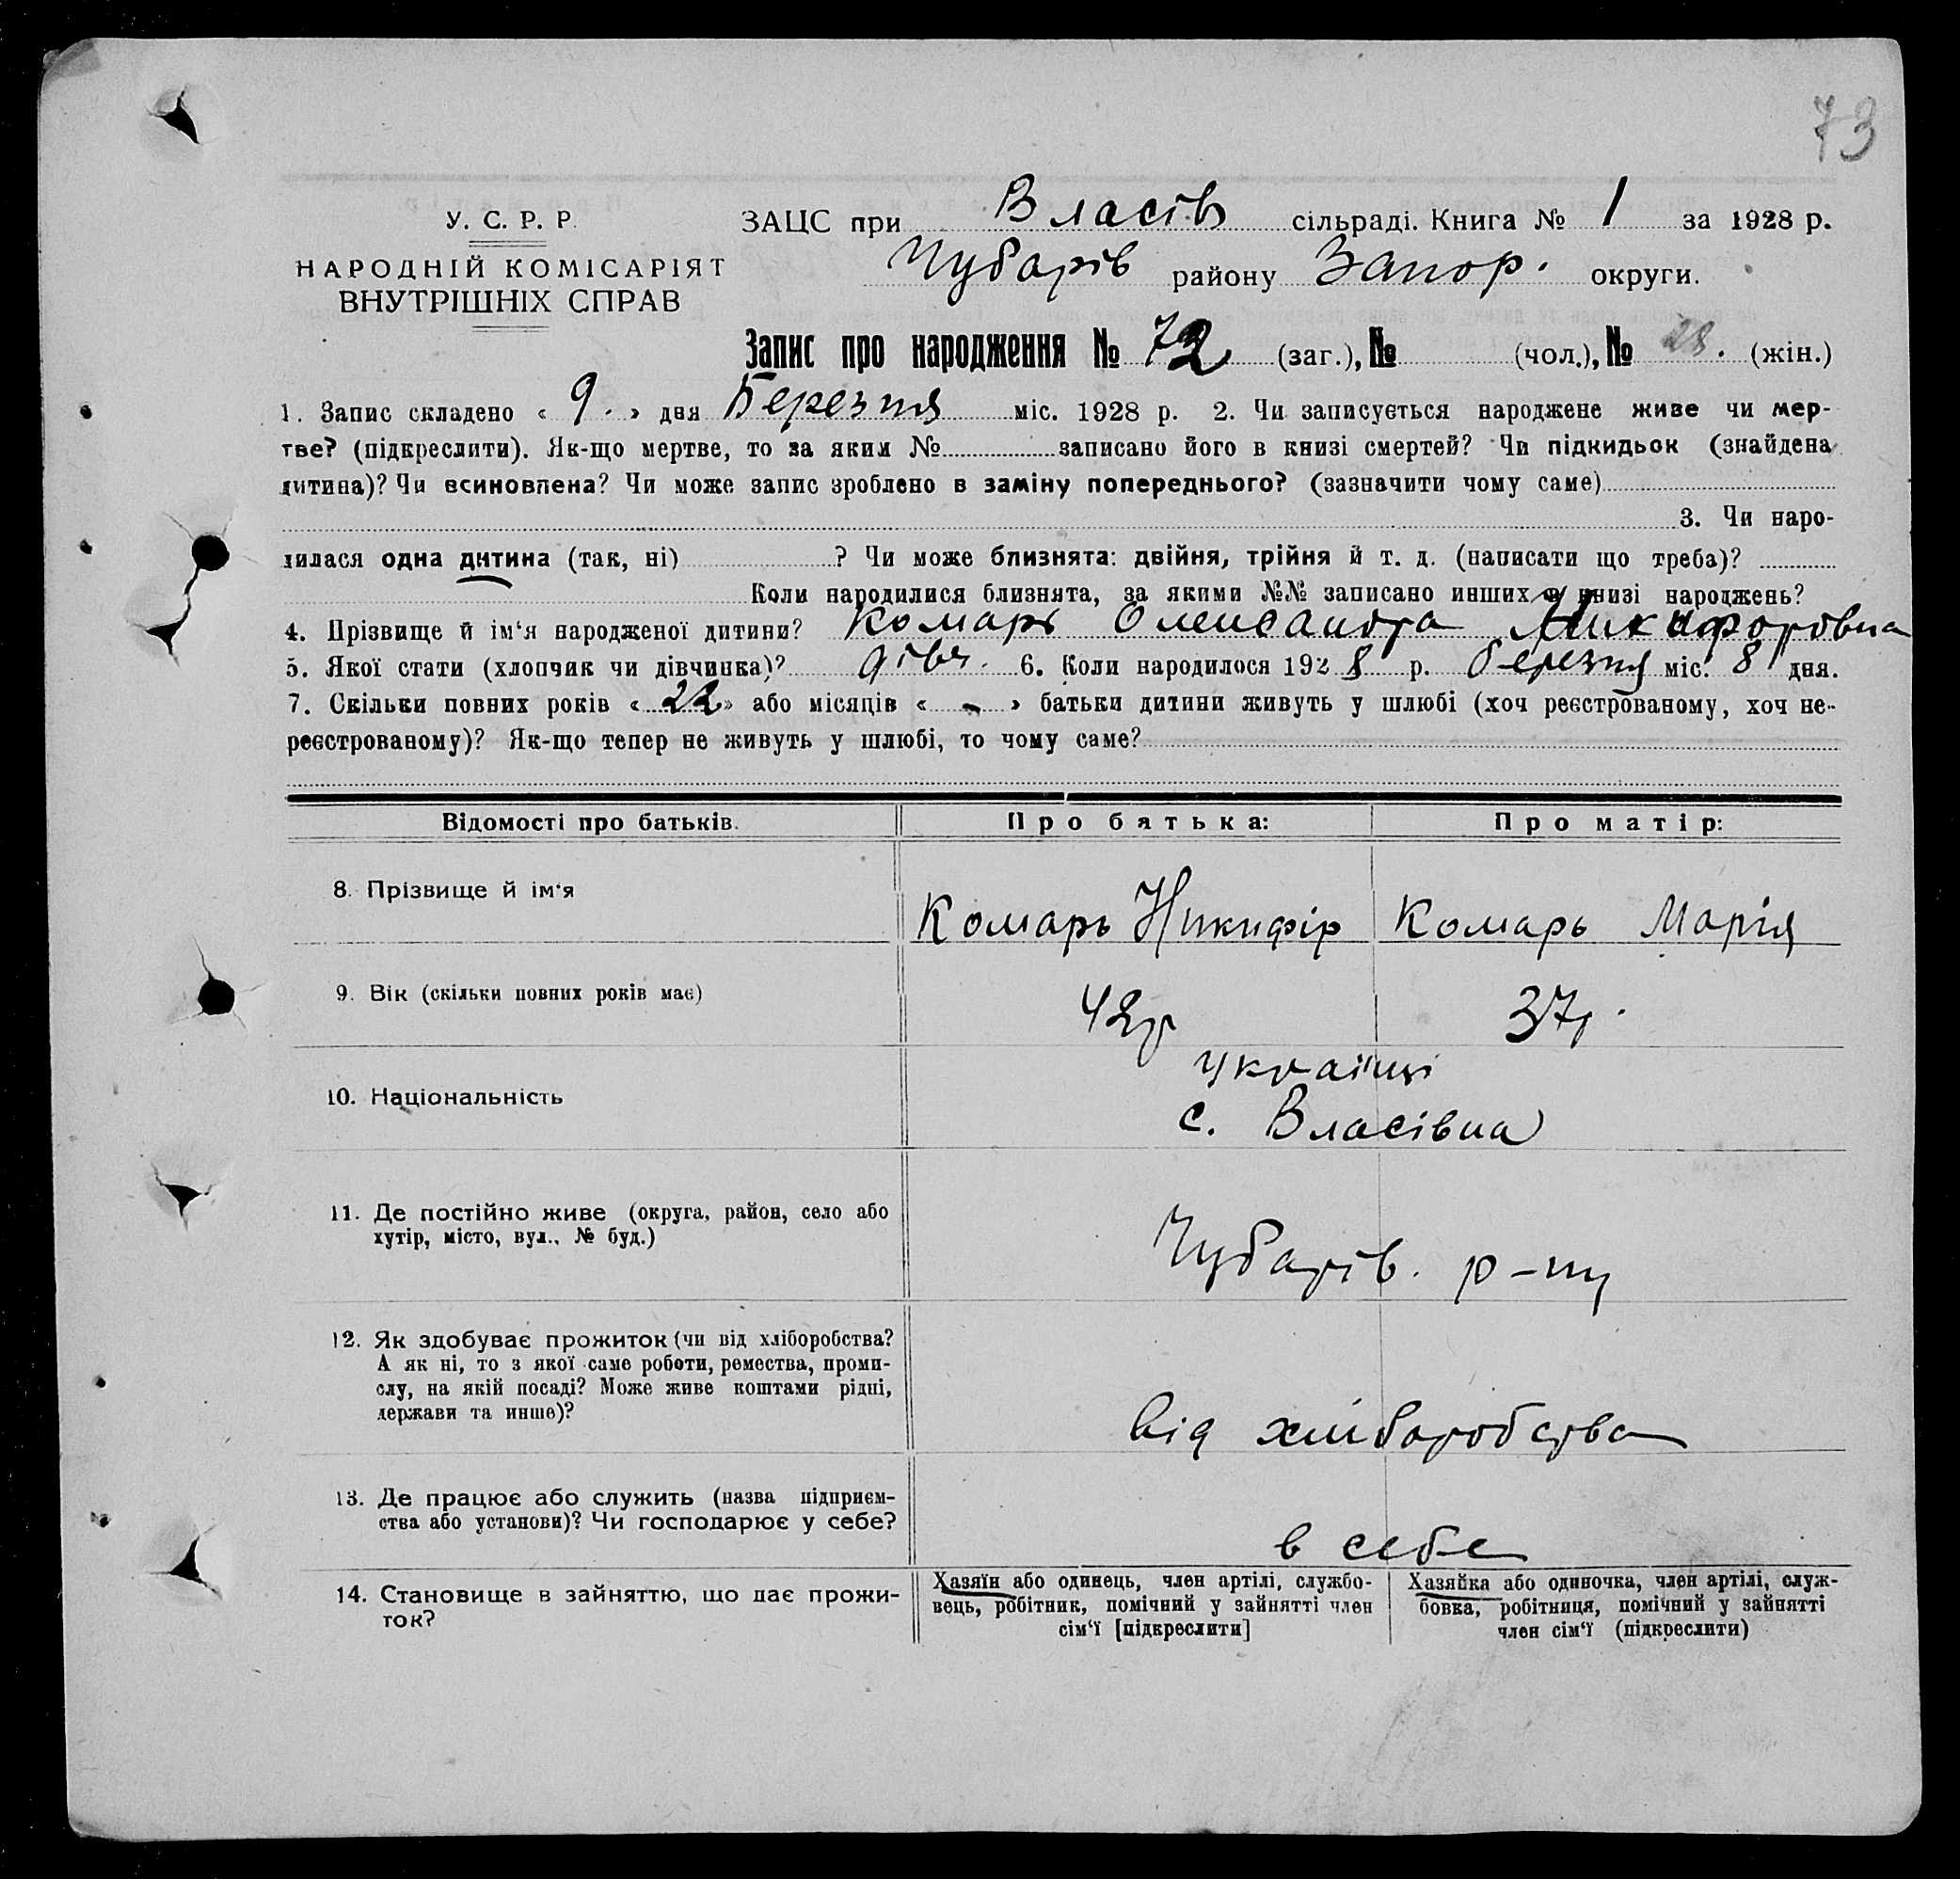 73
У. С. Р. Р.
НАРОДНІЙ КОМІСАРІЯТ
ВНУТРІШНІХ СПРАВ
ЗАЦС при Власів сільраді. Книга № 1 за 1928 р.
Чубарів району Запор. округи.
Запис про народження № 72 (заг.), № (чол.), № 28. (жін.)
1. Запис складено « 9. » дня Березня міс. 1928 р. 2. Чи записується народжене живе чи мер-
тве? (підкреслити). Як-що мертве, то за яким № записано його в книзі смертей? Чи підкидьок (знайдена
дитина)? Чи всиновлена? Чи може запис зроблено в заміну попереднього? (зазначити чому саме)
3. Чи наро-
дилася одна дитина (так, ні) ? Чи може близнята: двійня, трійня й т. д. (написати що треба)?
Коли народилися близнята, за якими №№ записано инших в книзі народжень?
4. Прізвище й ім'я народженої дитини? Комарь Олександра Никифоровна
5. Якої стати (хлопчик чи дівчинка)? дівч. 6. Коли народилося 1928 р. березня міс. 8 дня.
7. Скільки повних років « 22 » або місяців « - » батьки дитини живуть у шлюбі (хоч реєстрованому, хоч не-
реєстрованому)? Як-що тепер не живуть у шлюбі, то чому саме?
Відомості про батьків. Про батька: Про матір:
8. Прізвище й ім'я Комарь Никифір Комарь Марія
9. Вік (скільки повних років має) 42р 37р.
українці
10. Національність
с. Власівка
11. Де постійно живе (округа, район, село або
хутір, місто, вул., № буд.)
Чубарів. р-ну
12. Як здобуває прожиток (чи від хліборобства?
А як ні, то з якої саме роботи, ремества, проми-
слу, на якій посаді? Може живе коштами рідні,
держави та инше)?
від хліборобства
13. Де працює або служить (назва підприєм-
ства або установи)? Чи господарює у себе?
в себе
14. Становище в зайняттю, що дає прожи-
ток?
Хазяїн або одинець, член артілі, службо-
вець, робітник, помічний у зайнятті член
сім'ї [підкреслити]
Хазяйка або одиночка, член артілі, служ-
бовка, робітниця, помічний у зайнятті
член сім'ї (підкреслити)